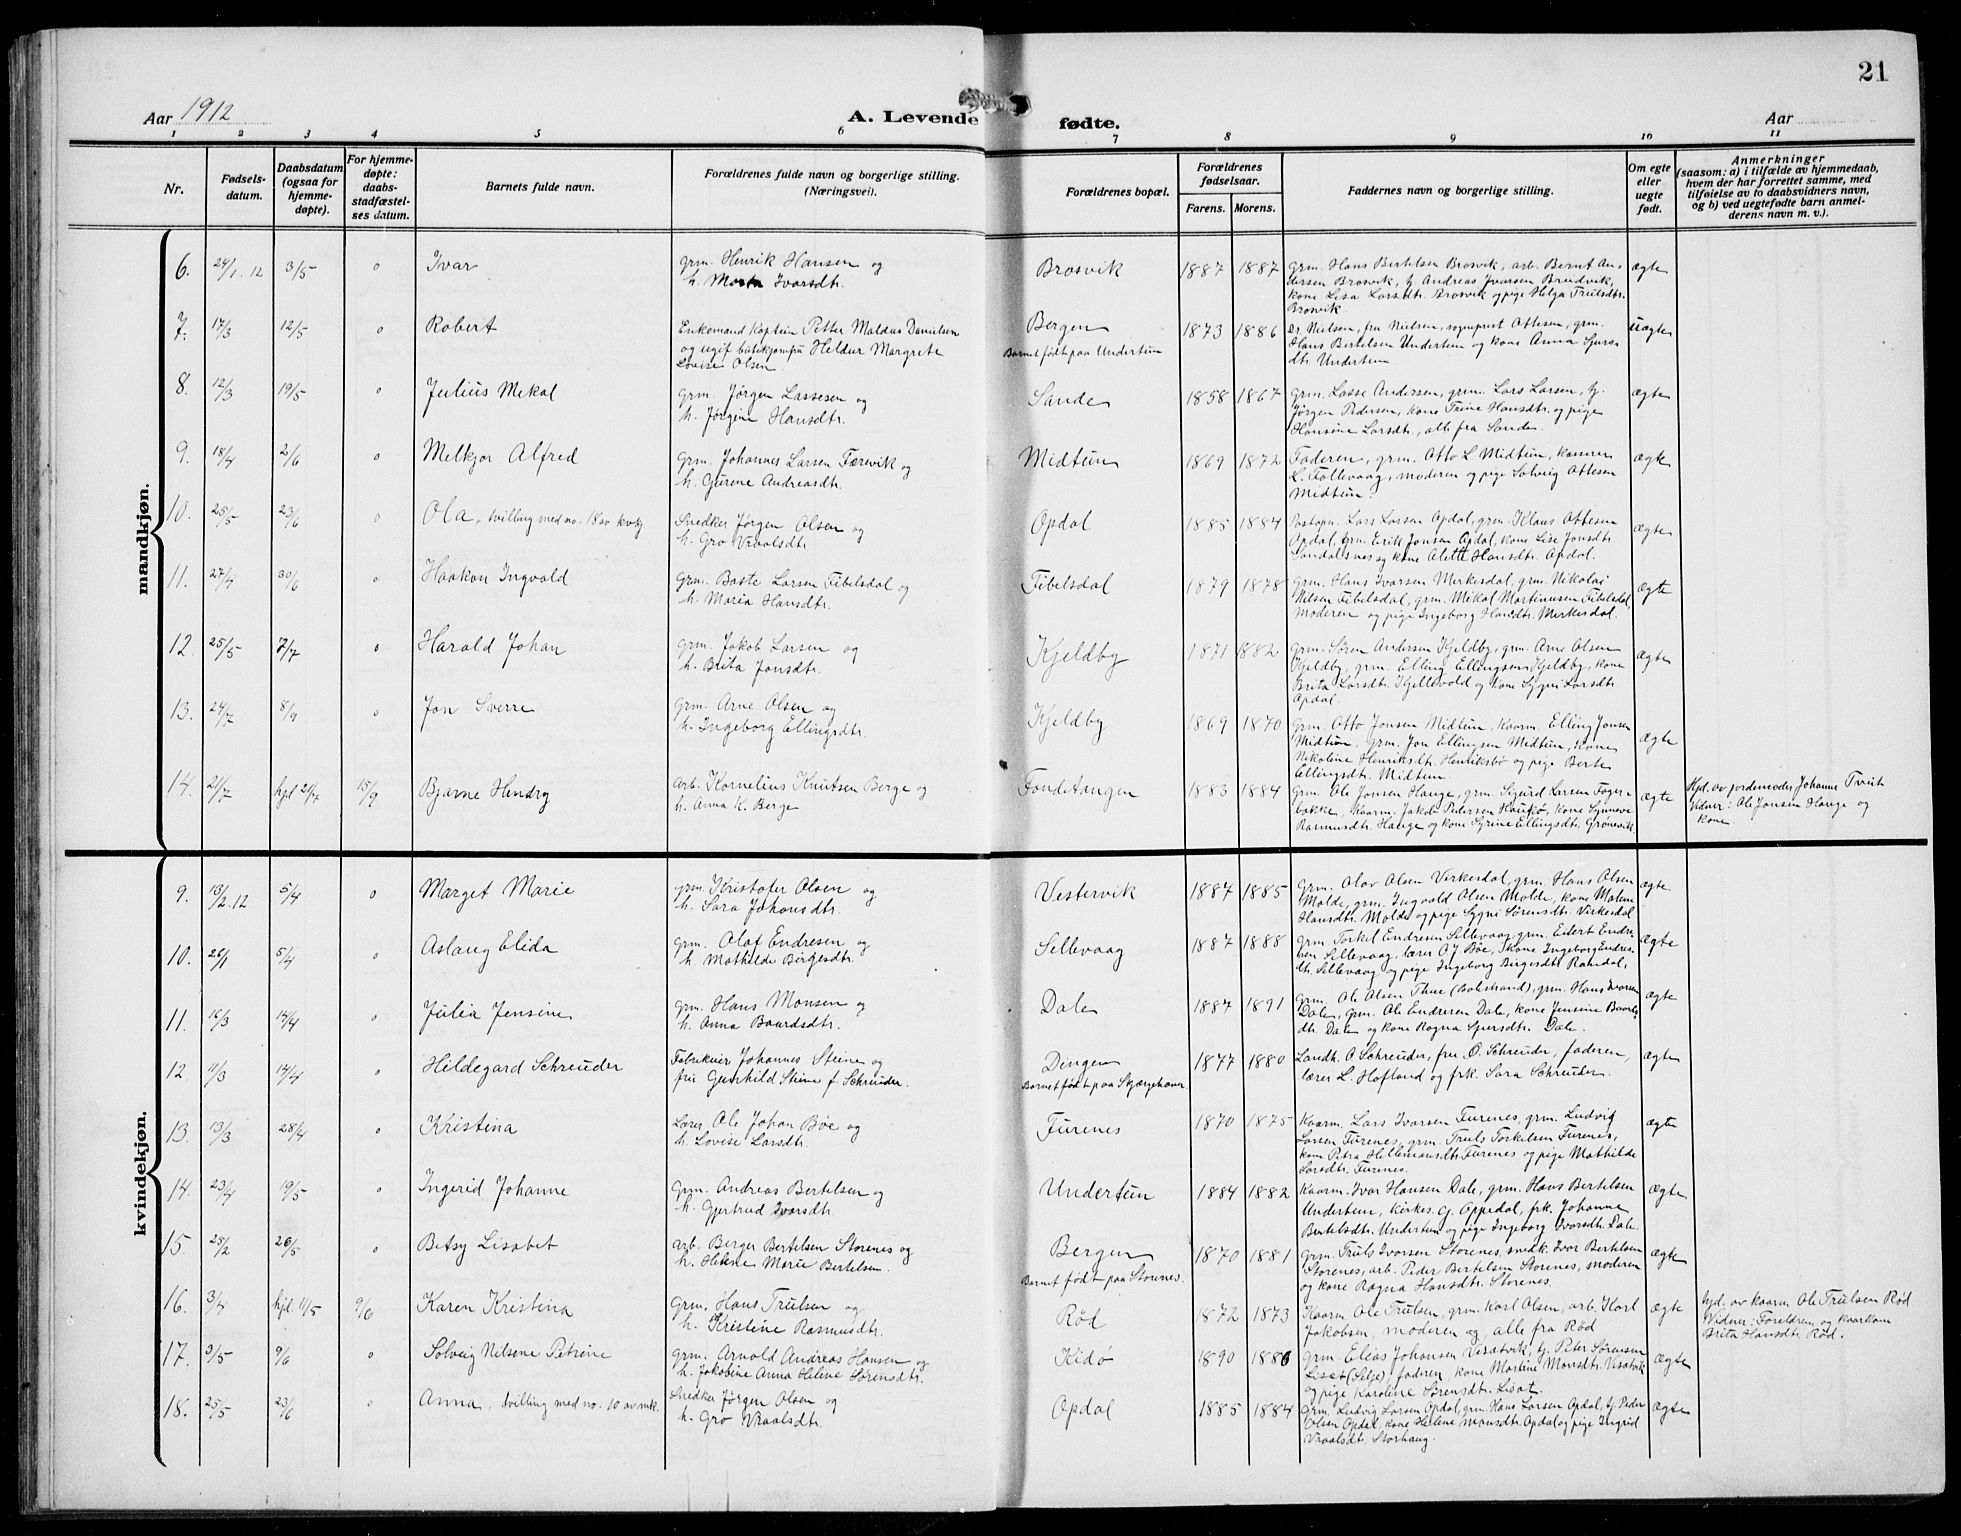 21
Aar 1912
A. Levende fødte.
Aar
1 2 3 4 5 6 7 8 9 10 11
Nr.
Fødsels-
datum.
Daabsdatum
(ogsaa for
hjemme-
døpte).
For hjemme-
døpte:
daabs-
stadfæstel-
ses datum.
Barnets fulde navn.
Forældrenes fulde navn og borgerlige stilling.
(Næringsvei).
Forældrenes bopæl.
Forældrenes
fødselsaar.
Farens. Morens.
Faddernes navn og borgerlige stilling.
Om egte
eller
uegte
født.
Anmerkninger
(saasom: a) i tilfælde av hjemmedaab,
hvem der har forrettet samme, med
tilføielse av to daabsvidners navn,
og b) ved uegtefødte barn anmel-
derens navn m. v.).
mandkjøn.
6. 24/1.12 3/5 o Ivar
grm. Henrik Hansen og
h. Marta Ivarsdtr.
Brosvik 1887 1887
grm. Hans Bertelsen Brosvik, arb. Bernt An-
dersen Brosvik, tj. Andreas Ivarsen Brudvik,
kone Lisa Larsdtr. Brosvik og pige Helga Trulsdtr.
Brosvik
ægte
7. 17/3 12/5 o Robert
Enkemand Kaptein Petter Moldus Danielsen
og ugif. butikjomfru Heldur Margrete
Lovise Olsen.
Bergen
Barnet født paa Undertun
1873 1886
Dr. Nielsen, fru Nielsen, sogneprest Ottesen, grm.
Hans Bertelsen Undertun og kone Anna Sjurs-
dtr. Undertun
uægte
8. 12/3 19/5 o Julius Mekal
grm. Jørgen Lassesen og
h. Jørgine Hansdtr.
Sande 1858 1867
grm. Lasse Andersen, grm. Lars Larsen, tj.
Jørgen Pedersen, kone Trine Hansdtr. og pige
Hansine Larsdtr., alle fra Sande.
ægte
9. 18/4 2/6 o Melkjor Alfred
grm. Johannes Larsen Færevik og
h. Gurene Andreasdtr.
Midtun 1869 1872
Faderen, grm. Otto L. Midtun, kasserer
L. Follevaag, moderen og pige Solveig Ottesen
Midtun.
ægte
10. 25/5 23/6 o Ola, tvilling med no. 18 av kvkj.
Snedker Jørgen Olsen og
h. Gro Vraalsdtr.
Opdal 1885 1884
Postopn. Lars Larsen Opdal, grm. Klaus Ottesen
Opdal, grm. Erik Jonsen Opdal, kone Lise Jonsdtr.
Sandalsnes og kone Alette Hansdtr. Opdal.
ægte
11. 27/4 30/6 o Haakon Ingvald
grm. Baste Larsen Fibelsdal og
h. Maria Hansdtr.
Fibelsdal 1879 1878
Grm. Hans Ivarsen Merkesdal, grm. Nikolai
Nilsen Fibelsdal, grm. Mikal Martinusen Fibelsdal,
moderen og pige Ingeborg Hansdtr. Merkesdal.
ægte
12. 25/5 7/7 o Harald Johan
grm. Jakob Larsen og
h. Brita Jonsdtr.
Kjeldby 1871 1882
Grm. Søren Andersen Kjeldby, grm. Arne Olsen
Kjeldby, grm. Elling Ellingsen Kjeldby, kone
Brita Larsdtr. Kjellevold og kone Sygni Larsdtr.
Opdal.
ægte
13. 24/7 8/9 o Jon Sverre
grm. Arne Olsen og
h. Ingeborg Ellingsdtr.
Kjeldby 1869 1870
Grm. Otto Jonsen Midtun, kaarm. Elling Jonsen
Midtun, grm. Jon Ellingsen Midtun, kone
Nikoline Henriksdtr. Henriksbø og pige Berte
Ellingsdtr. Midtun
ægte
14. 21/7 hjd 21/7 15/9 Bjarne Hendry
arb. Kornelius Knutsen Berge og
h. Anna K. Berge
Fondetangen 1883 1884
Grm. Ole Jonsen Hauge, grm. Sigurd Larsen Fager-
bakke, kaarm. Jakob Pedersen Haukø, kone Synneve
Rasmusdtr. Hauge og kone Syrine Ellingsdtr. Grønevik
ægte
Hjd. av jordemoder Johanne Tveit
Vidner: Ole Jonsen Hauge og
kone
kvindekjøn.
9. 13/2.12 5/4 o Marget Marie
grm. Kristofer Olsen og
h. Sara Johansdtr.
Vestervik 1884 1885
grm. Olav Olsen Virkesdal, grm. Hans Olsen
Molde, grm. Ingvald Olsen Molde, kone Malene
Hansdtr. Molde og pige Sygni Sørensdtr. Virkesdal
ægte
10. 26/1 5/4 o Aslaug Elida
grm. Olaf Endresen og
h. Mathilde Birgesdtr.
Sellevaag 1887 1888
grm Torkel Endresen Sellevaag, grm. Eilert Endre-
sen Sellevaag, lærer O. J. Bøe, kone Ingeborg Endres-
dtr. Sellevaag og pige Ingeborg Birgesdtr. Ramdal,
ægte
11. 16/3 14/4 o Julia Jensine
grm. Hans Monsen og
h. Anna Baardsdtr.
Dale 1887 1891
grm. Ole Olsen Thue (Balestrand), grm. Hans Ivarsen
Dale, grm. Ole Endresen Dale, kone Jensine Baards-
dtr. Dale og kone Ragna Sjursdtr. Dale.
ægte
12. 11/3 14/4 o Hildegard Schreuder
Fabrikeier Johannes Steine og
fru Gunhild Steine f. Schreuder.
Dingen
Barnet født paa Skjærgehavn
1877 1880
Landh. O Schreuder, fru O. Schreuder, faderen,
lærer L. Hofland og frk. Sara Schreuder.
ægte
13. 13/3 28/4 o Kristina
Lærer Ole Johan Bøe og
h. Lovise Larsdtr.
Furenes 1870 1875
Kaarm. Lars Ivarsen Furenes, grm. Ludvig
Larsen Furenes, grm. Truls Torkelsen Furenes,
kone Petra Hellemansdtr. Furenes og pige Mathilde
Larsdtr. Furenes.
ægte
14. 23/4 19/5 o Ingerid Johanne
Grm. Andreas Bertelsen og
h. Gjertrud Ivarsdtr.
Undertun 1884 1882
Kaarm. Ivar Hansen Dale, grm. Hans Bertelsen
Undertun, kirkes. G. Oppedal, frk. Johanne
Bertelsdtr. Undertun og pige Ingeborg Ivarsdtr. Dale.
ægte
15. 25/2 26/5 o Betsy Lisabet
arb. Berger Bertelsen Storenes og
h. Helene Marie Bertelsen.
Bergen
Barnet født paa Storenes.
1870 1881
grm. Truls Ivarsen Storenes, snedk. Ivar Bertelsen
Storenes, arb. Peder Bertelsen Storenes, moderen
og kone Ragna Hansdtr. Storenes.
ægte
16. 3/4 hjd. 11/5 9/6 Karen Kristina
Grm. Hans Trulsen og
h. Kristine Rasmusdtr.
Rød 1872 1873
Kaarm Ole Trulsen, grm. Karl Olsen, arb. Karl
Jakobsen, moderen og alle fra Rød
ægte
Hjd. av kaarm. Ole Trulsen Rød
Vidner: Foreldrene og kaarkone
Brita Hansdtr. Rød.
17. 3/5 9/6 o Solveig Nilsene Petrine
grm. Arnold Andreas Hansen og
h. Jakobine Anna Helene Sørensdtr.
Kidø 1890 1886
grm. Elias Johansen Visatvik, tj. Peter Sørensen
Lisæt (Selje), faderen, kone Martine Monsdtr. Visatvik
og pige Karoline Sørensdtr. Lisæt.
ægte
18. 25/5 23/6 o Anna, tvilling med no. 10 av mk.
Snedker Jørgen Olsen og
h. Gro Vraalsdtr.
Opdal 1885 1884
grm. Ludvig Larsen Opdal, grm. Hans Larsen Opdal, tj. Peder
Olsen Opdal, kone Helene Monsdtr. Opdal og pige Ingrid
Vraalsdtr. Storhaug.
ægte